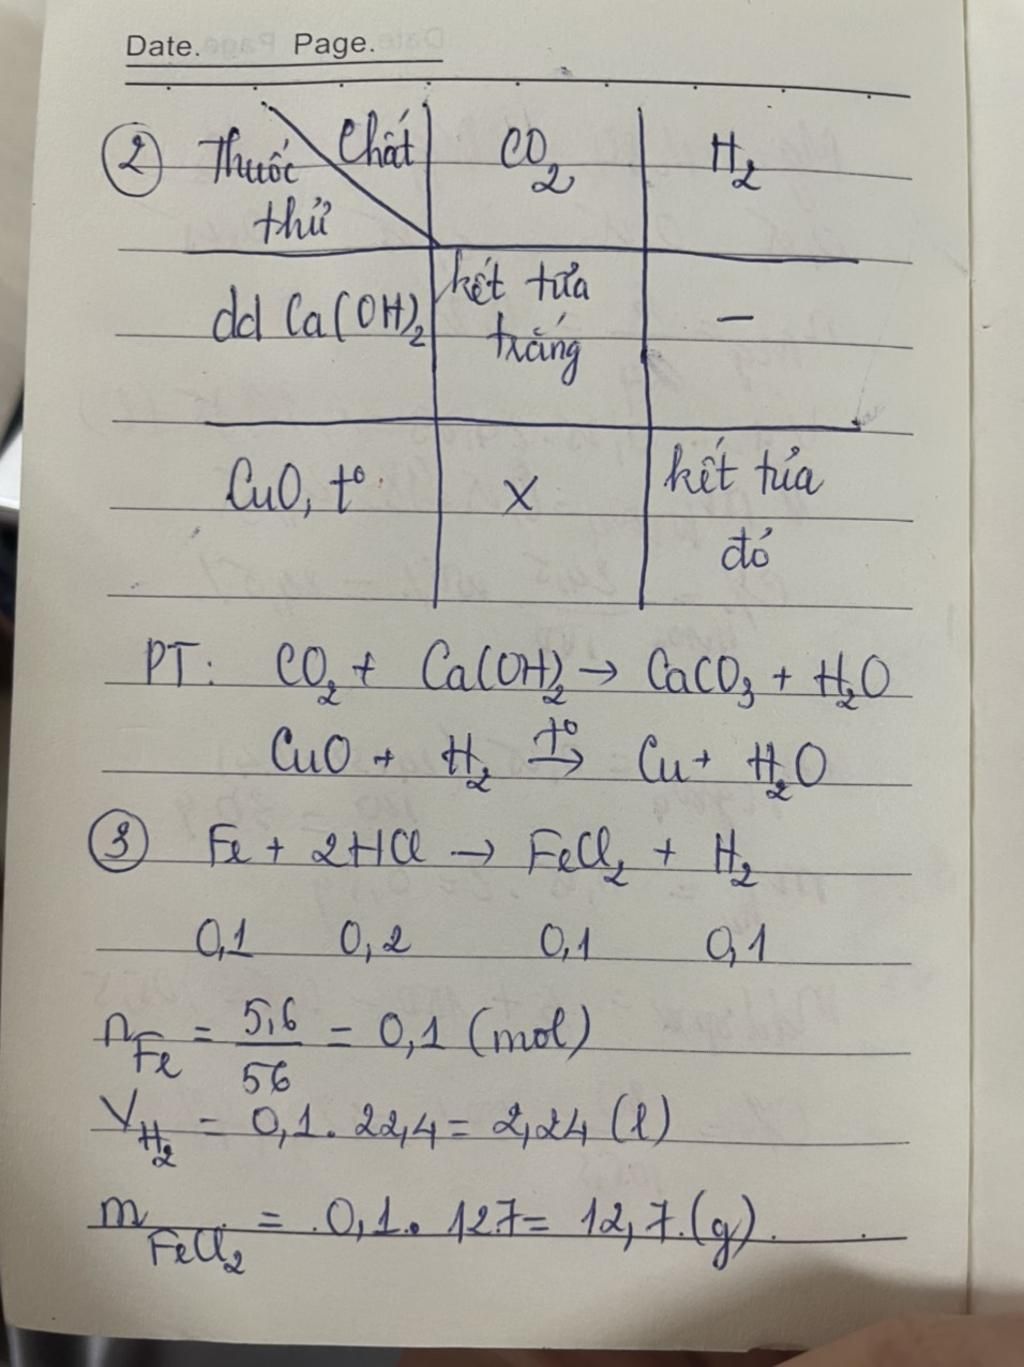 Date. Page.
② Thuốc thử Chất CO₂ H₂
dd Ca(OH)₂ kết tủa trắng –
CuO, t° x kết tủa đỏ
PT: CO₂ + Ca(OH)₂ → CaCO₃ + H₂O
CuO + H₂ t°→ Cu + H₂O
③ Fe + 2HCl → FeCl₂ + H₂
0,1 0,2 0,1 0,1
n_Fe = 5,6/56 = 0,1 (mol)
V_H₂ = 0,1 . 22,4 = 2,24 (l)
m_FeCl₂ = 0,1 . 127 = 12,7 (g)